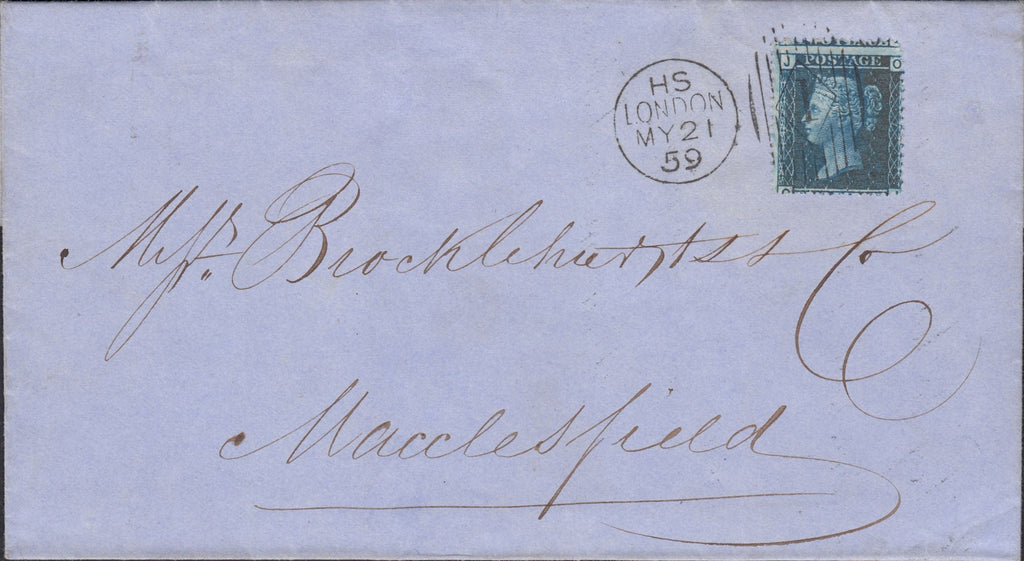 HS
LONDON
MY 21
59
J POSTAGE O
Messrs. Brocklehursts & Co
Macclesfield